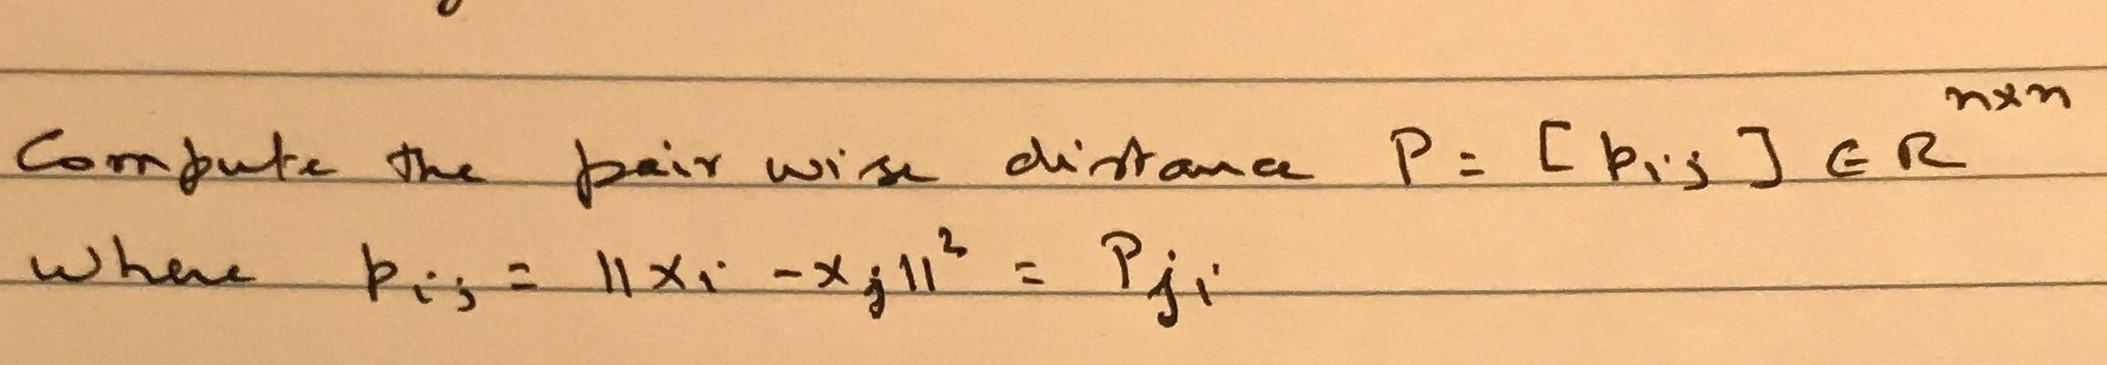 Compute the pair wise distance P = [pij] ∈ R^{n×n}
where pij = ||xi - xj||^2 = Pji